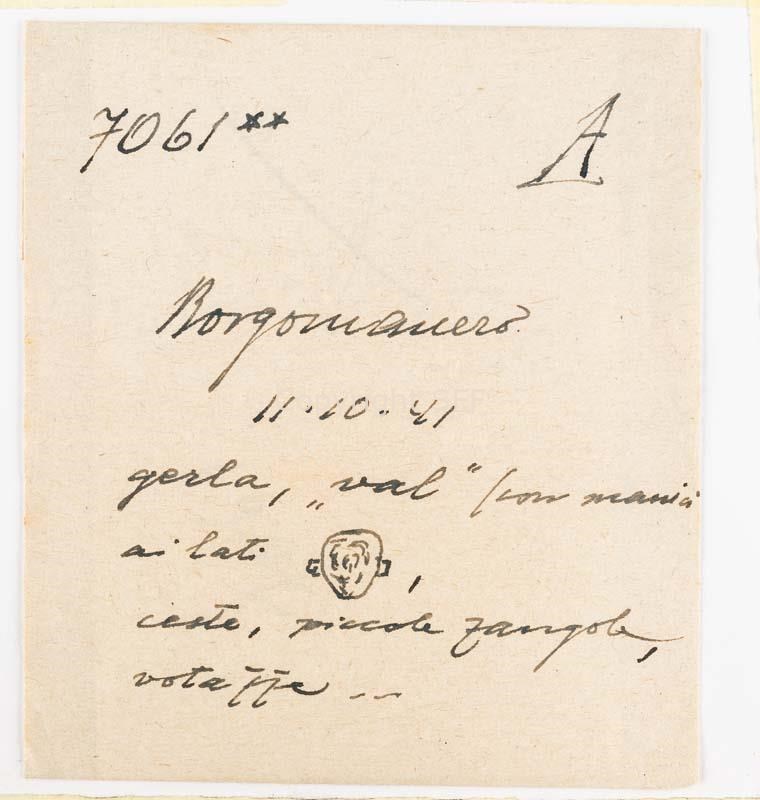 7061**
A
Borgomanero
11.10.41
gerla, „val" (con manici
ai lati ,
ceste, piccole zangole,